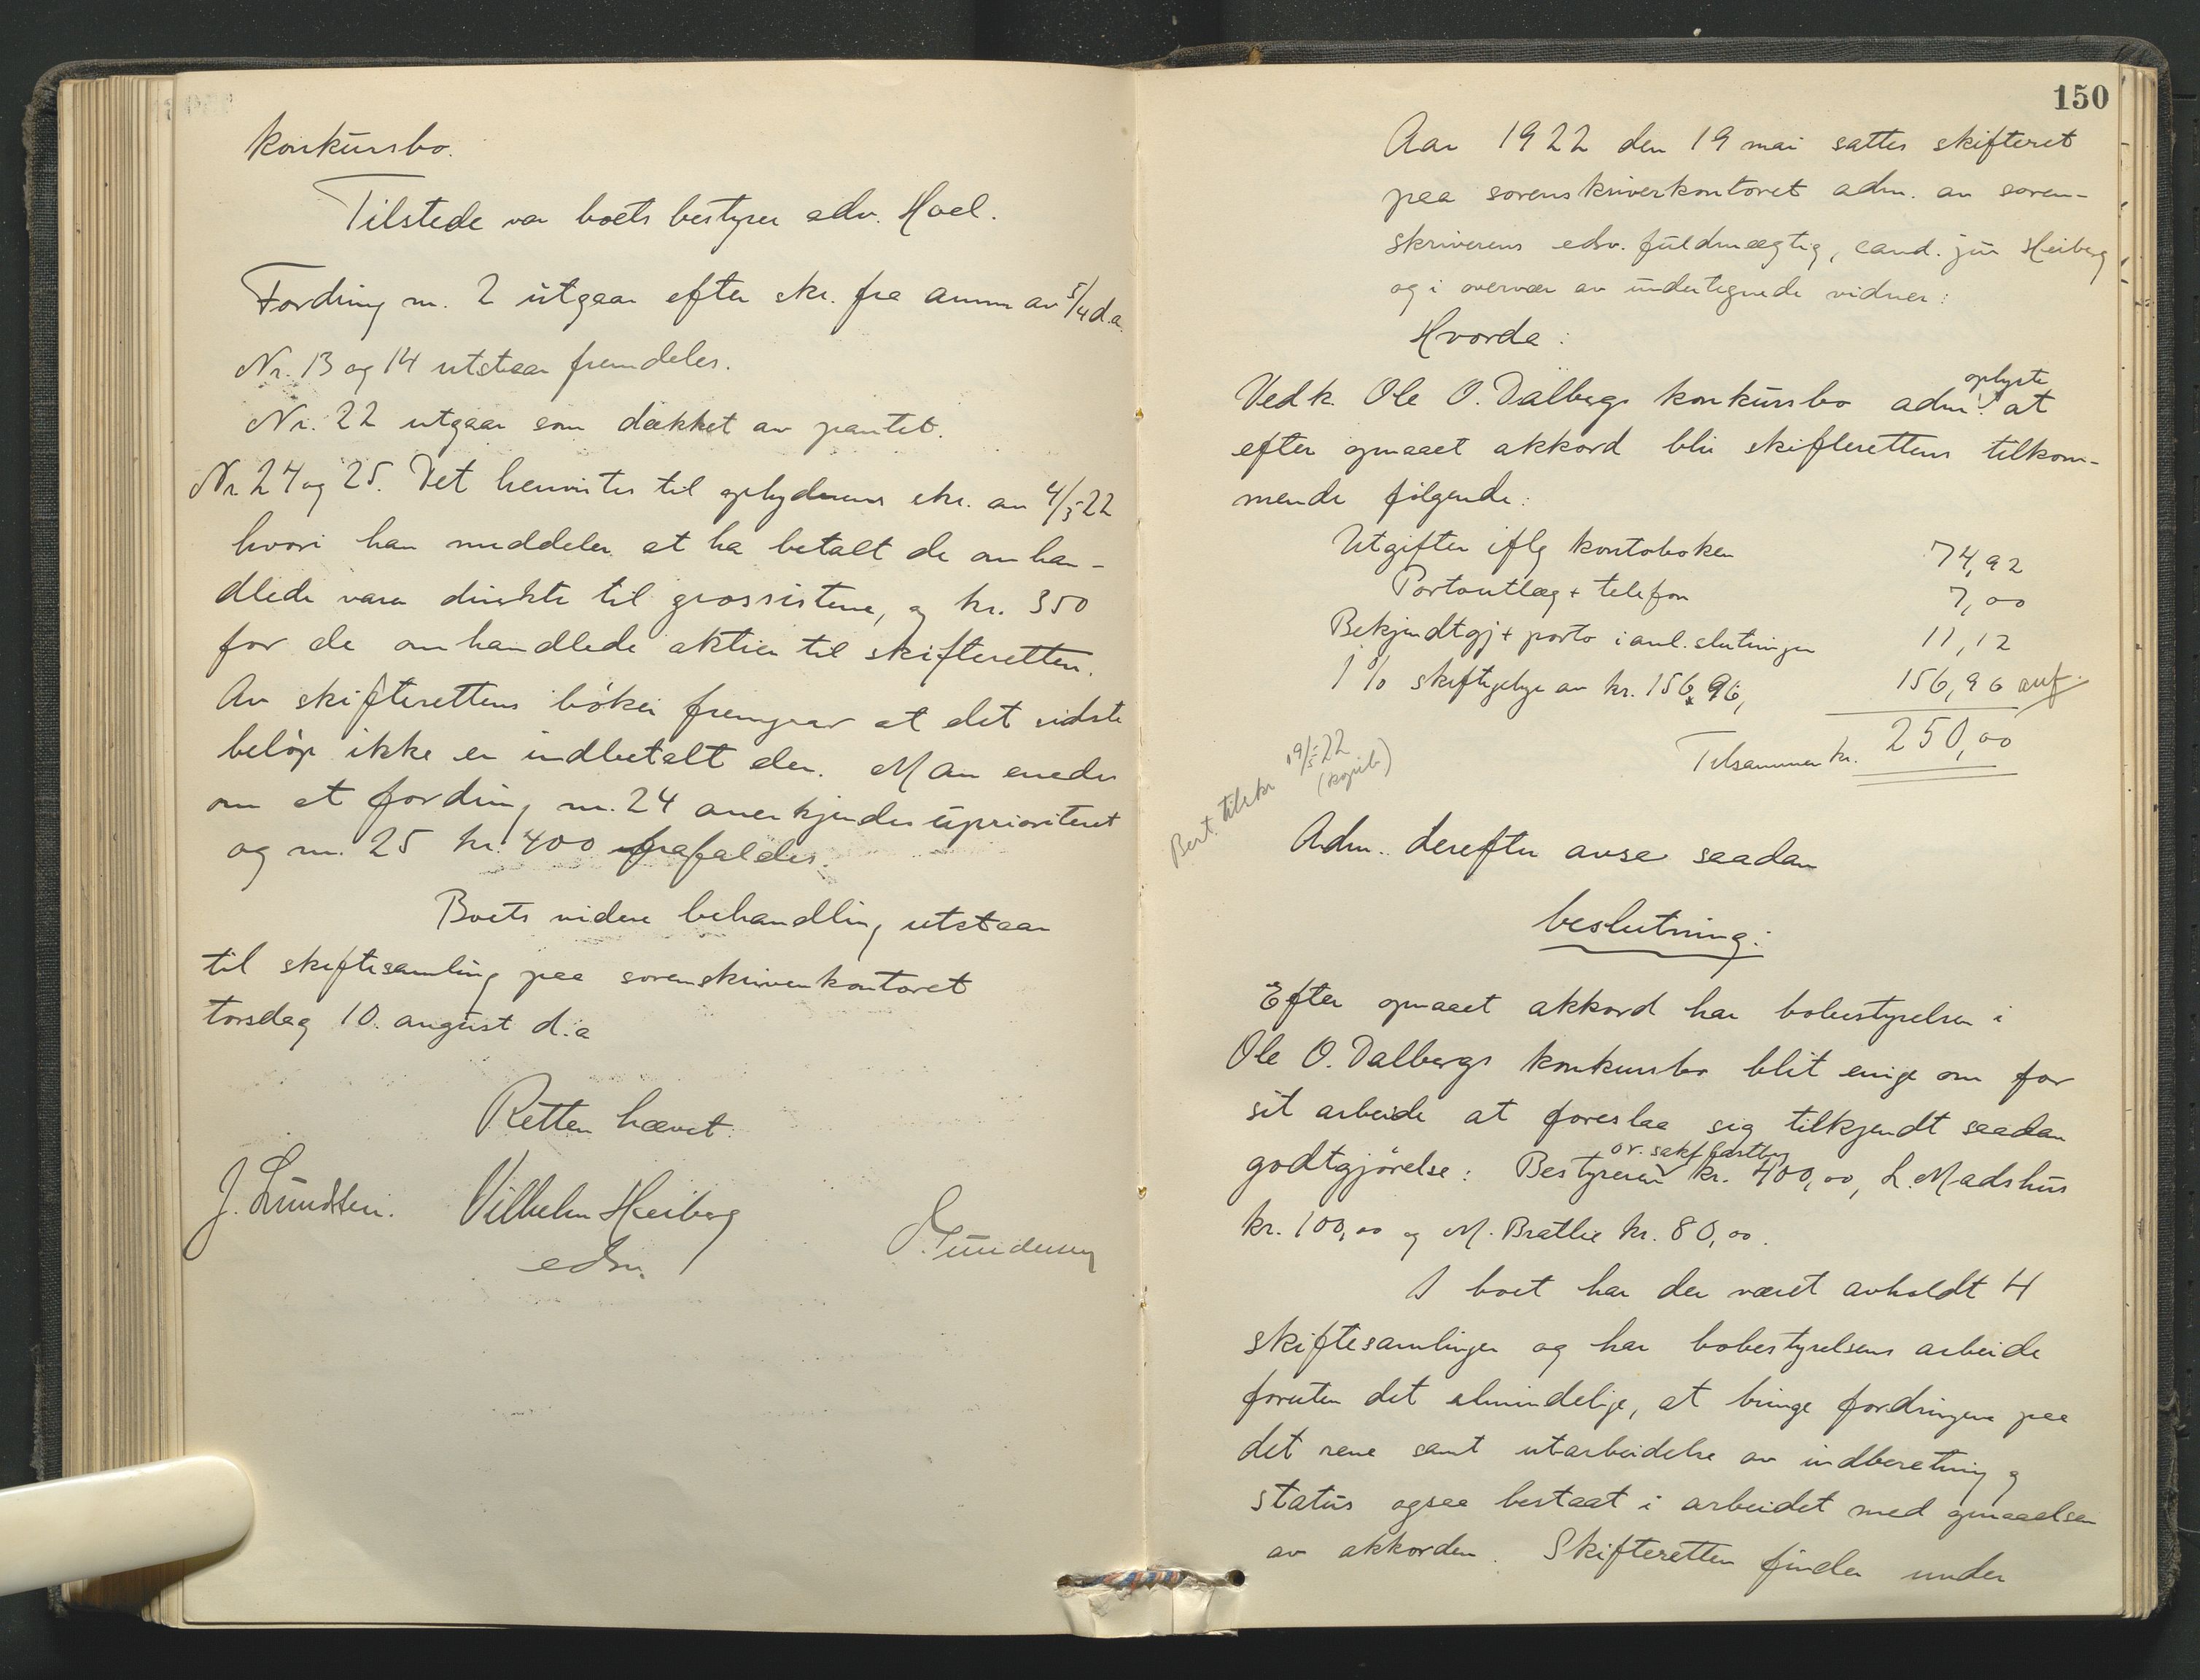 konkursbo.
Tilstede var boets bestyrer adv. Hoel.
Fordring nr. 2 utgaar efter skr. fra anm av 5/4 d.a.
Nr. 13 og 14 utstaar fremdeles.
Nr. 22 utgaar som dækket av pantet.
Nr 24 og 25. Det henvistes til opbyderens skr. av 4/5-22
hvori han meddeler at ha betalt de omhan-
dlede varer direkte til grossistene, og kr. 350
for de omhandlede aktier til skifteretten.
Av skifterettens bøker fremgaar at det sidste
beløp ikke er indbetalt der. Man enedes
om at fordring nr. 24 anerkjendes uprioritert
og nr. 25 kr. 400 frafaldes.
Boets videre behandling utstaar
til skiftesamling paa sorenskriverkontoret
torsdag 10. august d.a
Retten hævet.
J. Lundsten. Vilhelm Heiberg
edsv.
Gundersen
150
Aar 1922 den 19 mai sattes skifteret
paa sorenskriverkontoret adm. av soren-
skriverens edsv. fuldmægtig, cand. jur Heiberg
og i overvær av undertegnede vidner:
Hvorda:
oplyste
Vedk. Ole O. Dalbergs konkursbo adm. at
efter opnaaet akkord blir skifterettens tilkom-
mende følgende:
Utgifter iflg kontoboken 74,92
Portoutlæg + telefon 7,00
Bekjendtgj + porto i anl. slutningen 11,12
1 % skiftegebyr av kr. 156,96, 156,96
Tilsammen kr. 250,00
Bert. tilskr 19/5-22
(kopieb.)
Adm. derefter avsa saadan
beslutning:
Efter opnaaet akkord har bobestyrelsen i
Ole O. Dalbergs konkursbo blit enige om for
sit arbeide at foreslaa sig tilkjendt saadan
or. sakf
godtgjørelse: Bestyreren kr. 400,00, L. Madshus
kr. 100,00 og M. Bratlie kr. 80,00.
I boet har der været avholdt 4
skiftesamlinger og har bobestyrelsens arbeide
foruten det almindelige, at bringe fordringene paa
det rene samt utarbeidelse av indberetning og
status ogsaa bestaat i arbeidet med opnaaelsen
av akkorden. Skifteretten finder under